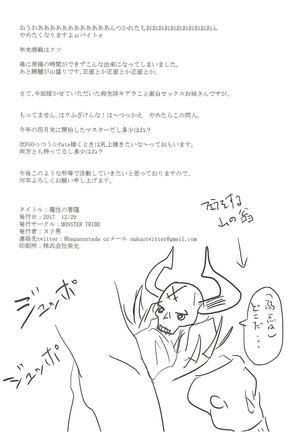 ぬうわああああああああああああんつかれたもおおおおおおおおおおおおおん
やめたくなりますよぉバイトォ
年末商戦はクソ
後に原稿の時間ができずこんな出来になってしまいました。
あと腰が山盛りです。正面とか正面とか正面とか。
さて、今回描かせていただいた殺生院キアラこと面白セックスお姉さんですが、
もってません。は?ふざけんな!は〜つっかえ やめたらこの同人。
今年の四月末に開始したマスターだし多少はね?
次FGOっつうかFate描くときは乳上描きたいな〜っておもいます。
両方とも持ってるし多少はね?
今後このような形等で活動していきたいと思っておりますので、
何卒よろしくお願い申し上げます。
タイトル:魔性の菩薩
発行日:2017 12/29
発行サークル:MONSTER TRIBE
発行者:ヌク男
連絡先twitter:@hagunontada orメール nukuotwitter@gmail.com
印刷所:株式会社栄光
山の翁
どこだ・・・
ジュッポ
ジュッポ